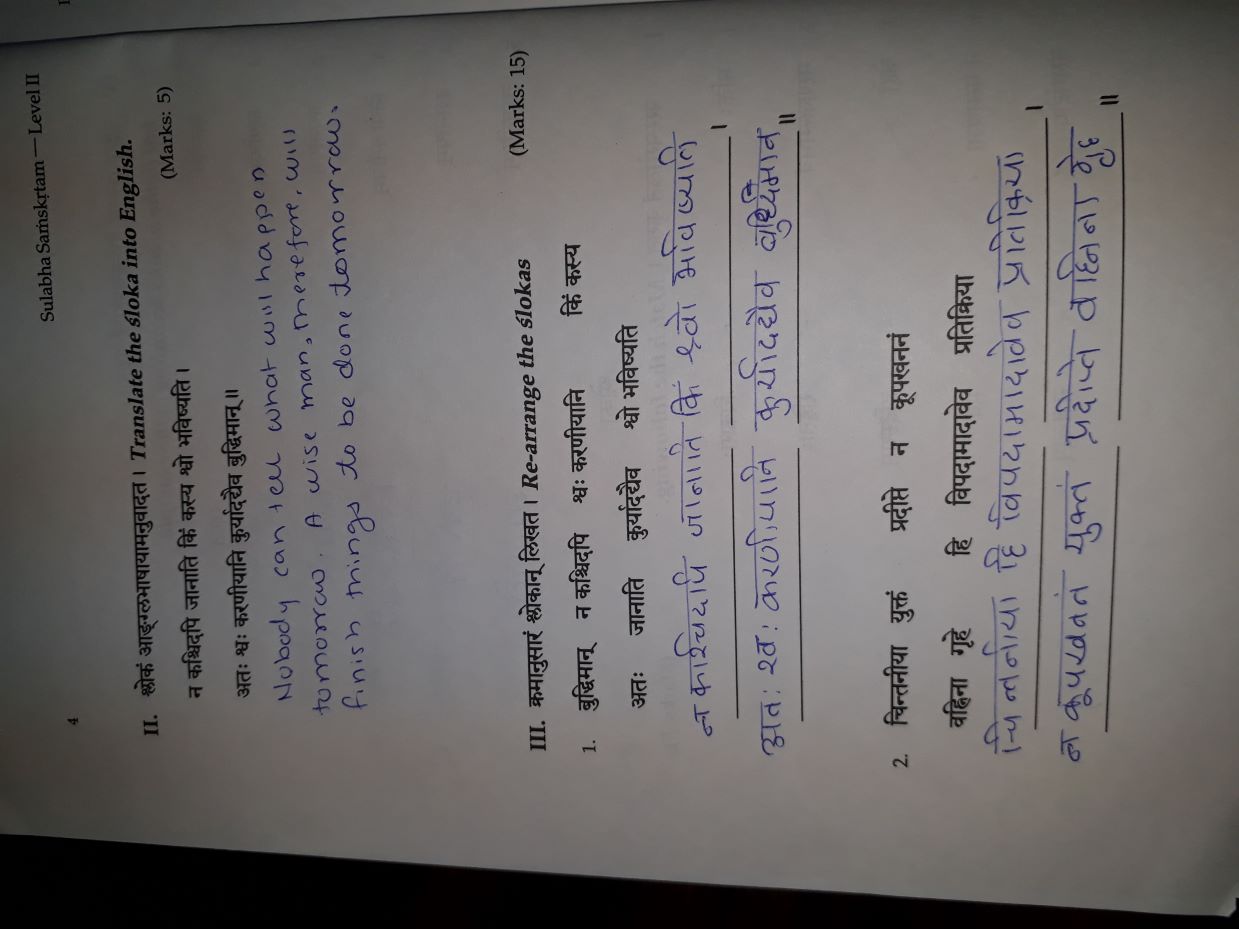 Sulabha Saṁskṛtam — Level II
4
II. श्लोकं आङ्ग्लभाषायामनुवादत। Translate the śloka into English.
(Marks: 5)
न कश्चिदपि जानाति किं कस्य श्वो भविष्यति।
अतः श्वः करणीयानि कुर्यादद्यैव बुद्धिमान्॥
Nobody can tell what will happen
tomorrow. A wise man, therefore, will
finish things to be done tomorrow.
III. क्रमानुसारं श्लोकान् लिखत। Re-arrange the ślokas (Marks: 15)
1. बुद्धिमान् न कश्चिदपि श्वः करणीयानि किं कस्य
अतः जानाति कुर्यादद्यैव श्वो भविष्यति
न कश्चिदपि जानाति किं श्वो भविष्यति ।
अतः श्वः करणीयानि कुर्यादद्यैव बुध्दिमान ॥
2. चिन्तनीया युक्तं प्रदीप्ते न कूपखननं
वह्निना गृहे हि विपदामादावेव प्रतिक्रिया
चिन्तनीया हि विपदामादावेव प्रतिक्रिया ।
न कूपखननं युक्तं प्रदीप्ते वह्निना गृहे ॥